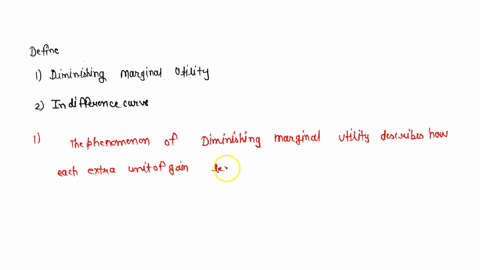 Define
1) Diminishing Marginal Utility
2) Indifference curve
1) The phenomenon of Diminishing marginal utility describes how
each extra unit of gain